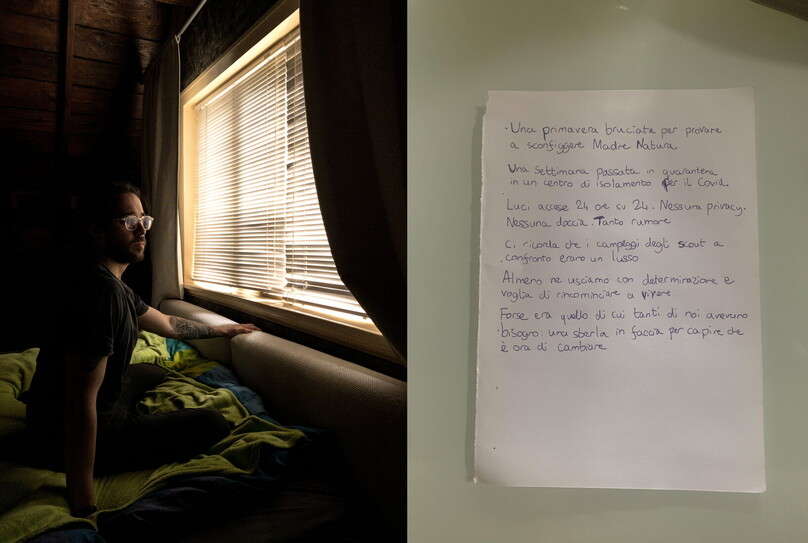 Una primavera bruciata per provare
a sconfiggere Madre Natura
Una settimana passata in quarantena
in un centro di isolamento per il Covid.
Luci accese 24 ore su 24. Nessuna privacy.
Nessuna doccia. Tanto rumore
Ci ricorda che i campeggi degli scout a
confronto erano un lusso
Almeno ne usciamo con determinazione e
voglia di rincominciare a vivere
Forse era quello di cui tanti di noi avevano
bisogno: una sberla in faccia per capire che
è ora di cambiare